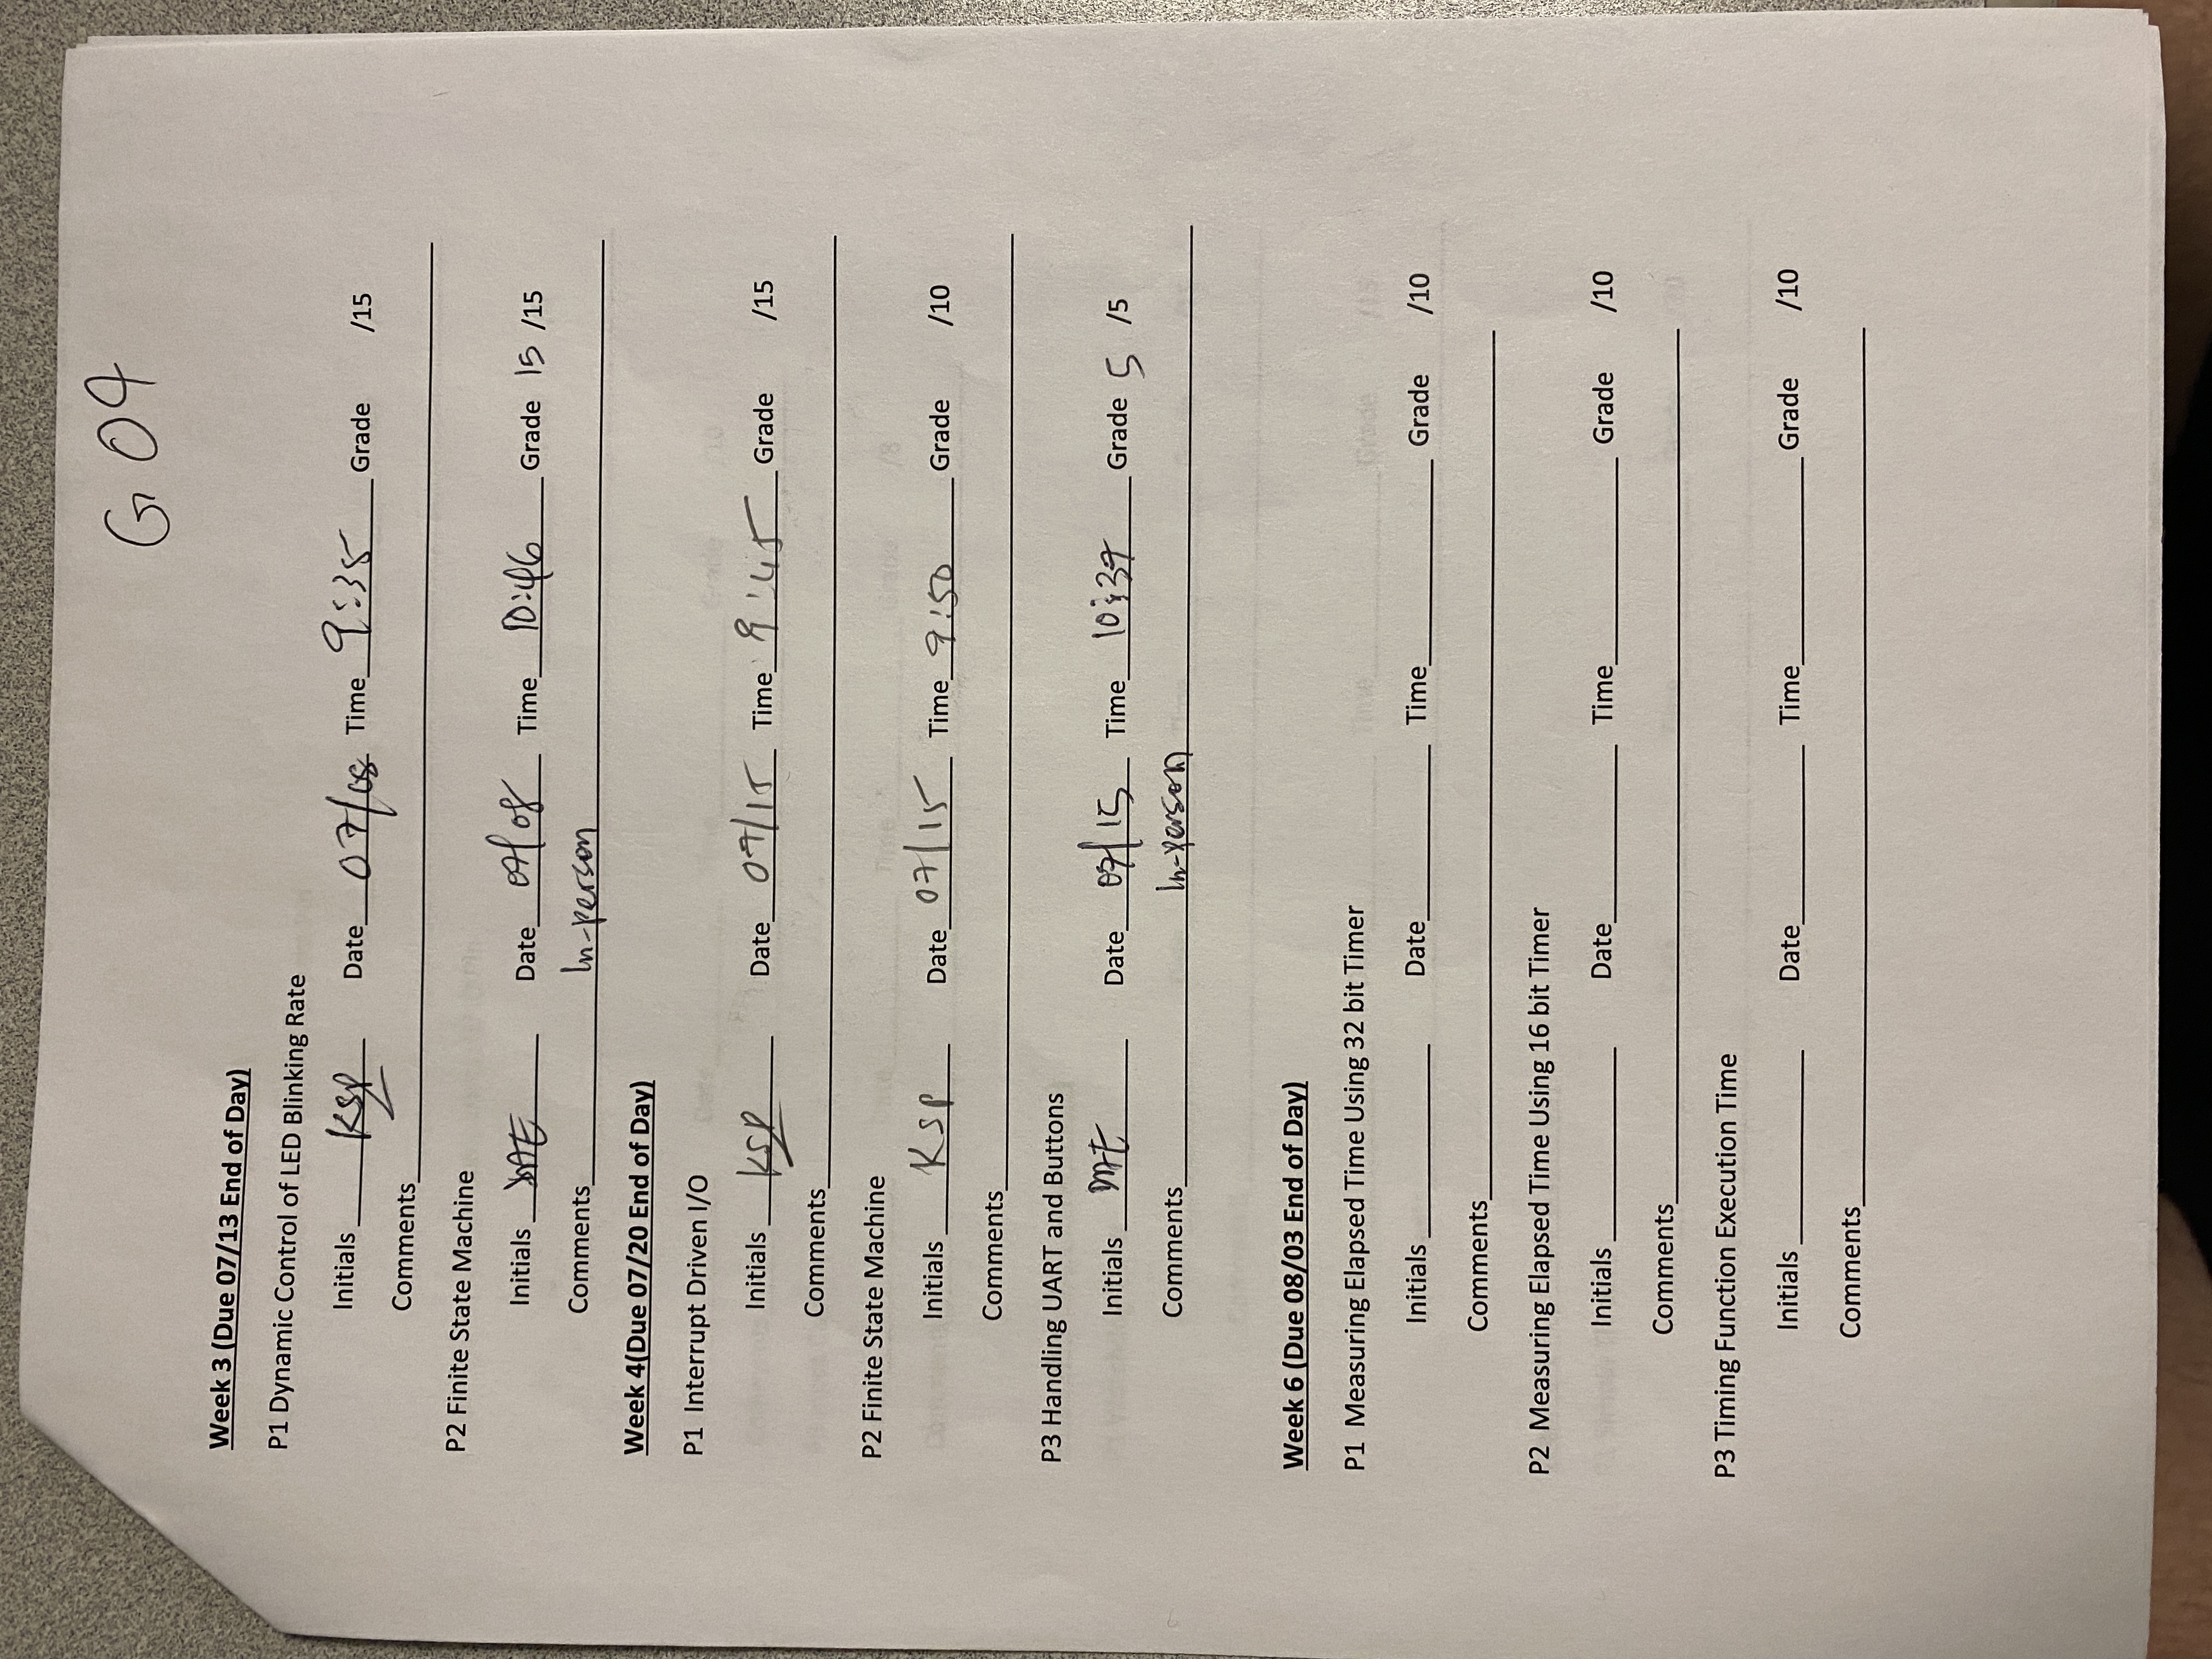 G 04
Week 3 (Due 07/13 End of Day)
P1 Dynamic Control of LED Blinking Rate
Initials KSP Date 07/08 Time 9:35 Grade /15
Comments
P2 Finite State Machine
Initials Date 07/08 Time 10:46 Grade 15 /15
Comments In-person
Week 4(Due 07/20 End of Day)
P1 Interrupt Driven I/O
Initials KSP Date 07/15 Time 9:45 Grade /15
Comments
P2 Finite State Machine
Initials KSP Date 07/15 Time 9:50 Grade /10
Comments
P3 Handling UART and Buttons
Initials Date 07/15 Time 10:37 Grade 5 /5
Comments In-person
Week 6 (Due 08/03 End of Day)
P1 Measuring Elapsed Time Using 32 bit Timer
Initials Date Time Grade /10
Comments
P2 Measuring Elapsed Time Using 16 bit Timer
Initials Date Time Grade /10
Comments
P3 Timing Function Execution Time
Initials Date Time Grade /10
Comments